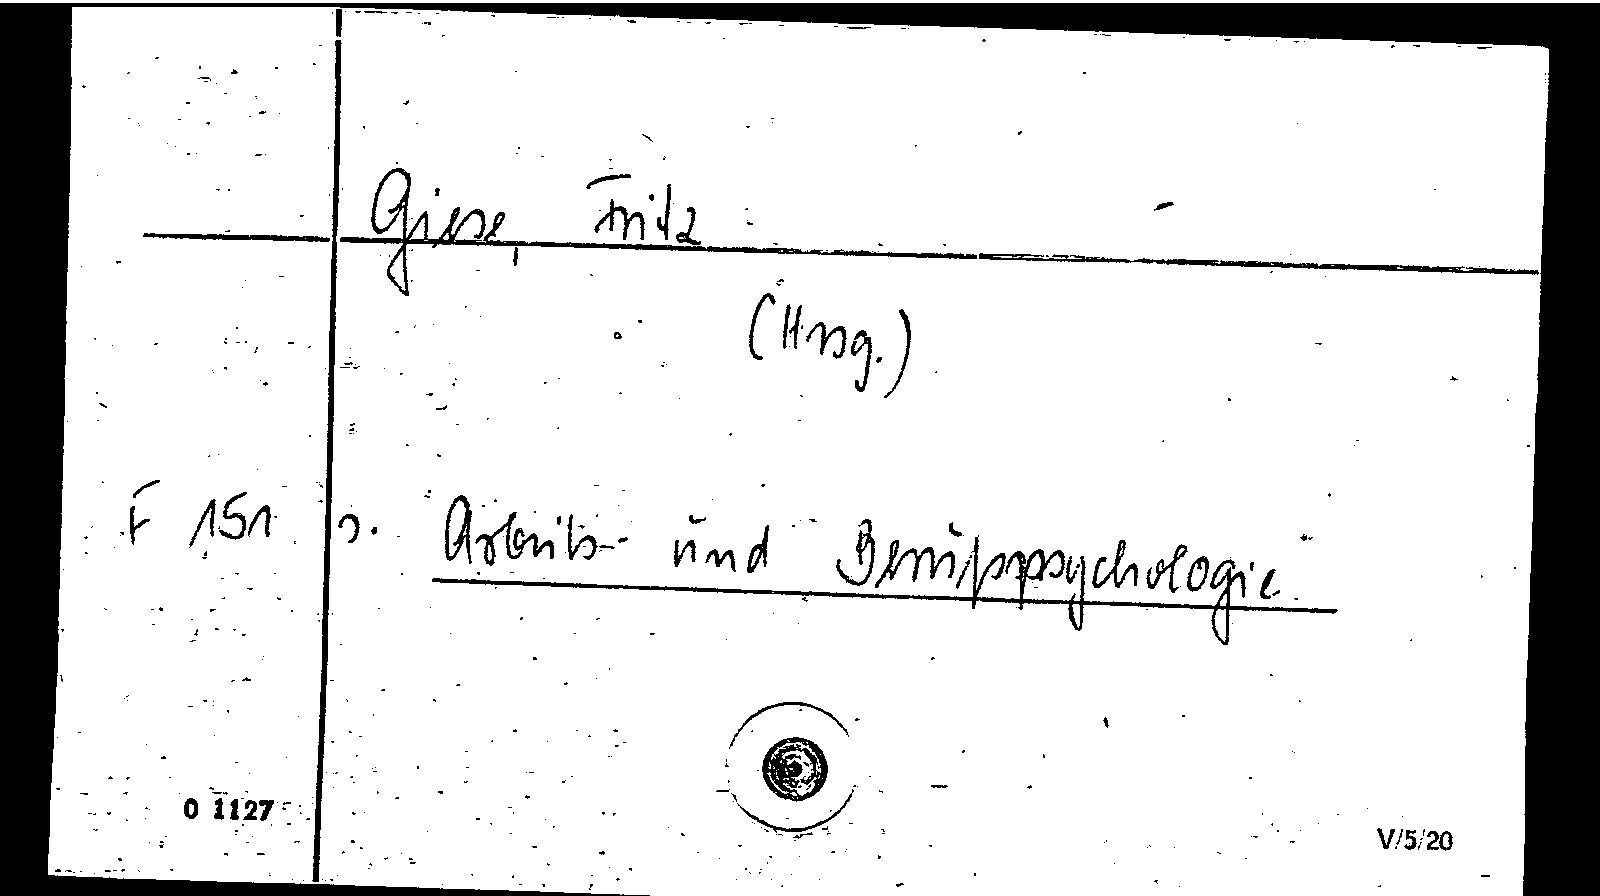 Giese, Fritz
(Hrsg.)
F 151 s. Arbeits- und Berufspsychologie
0 1127
V/5/20